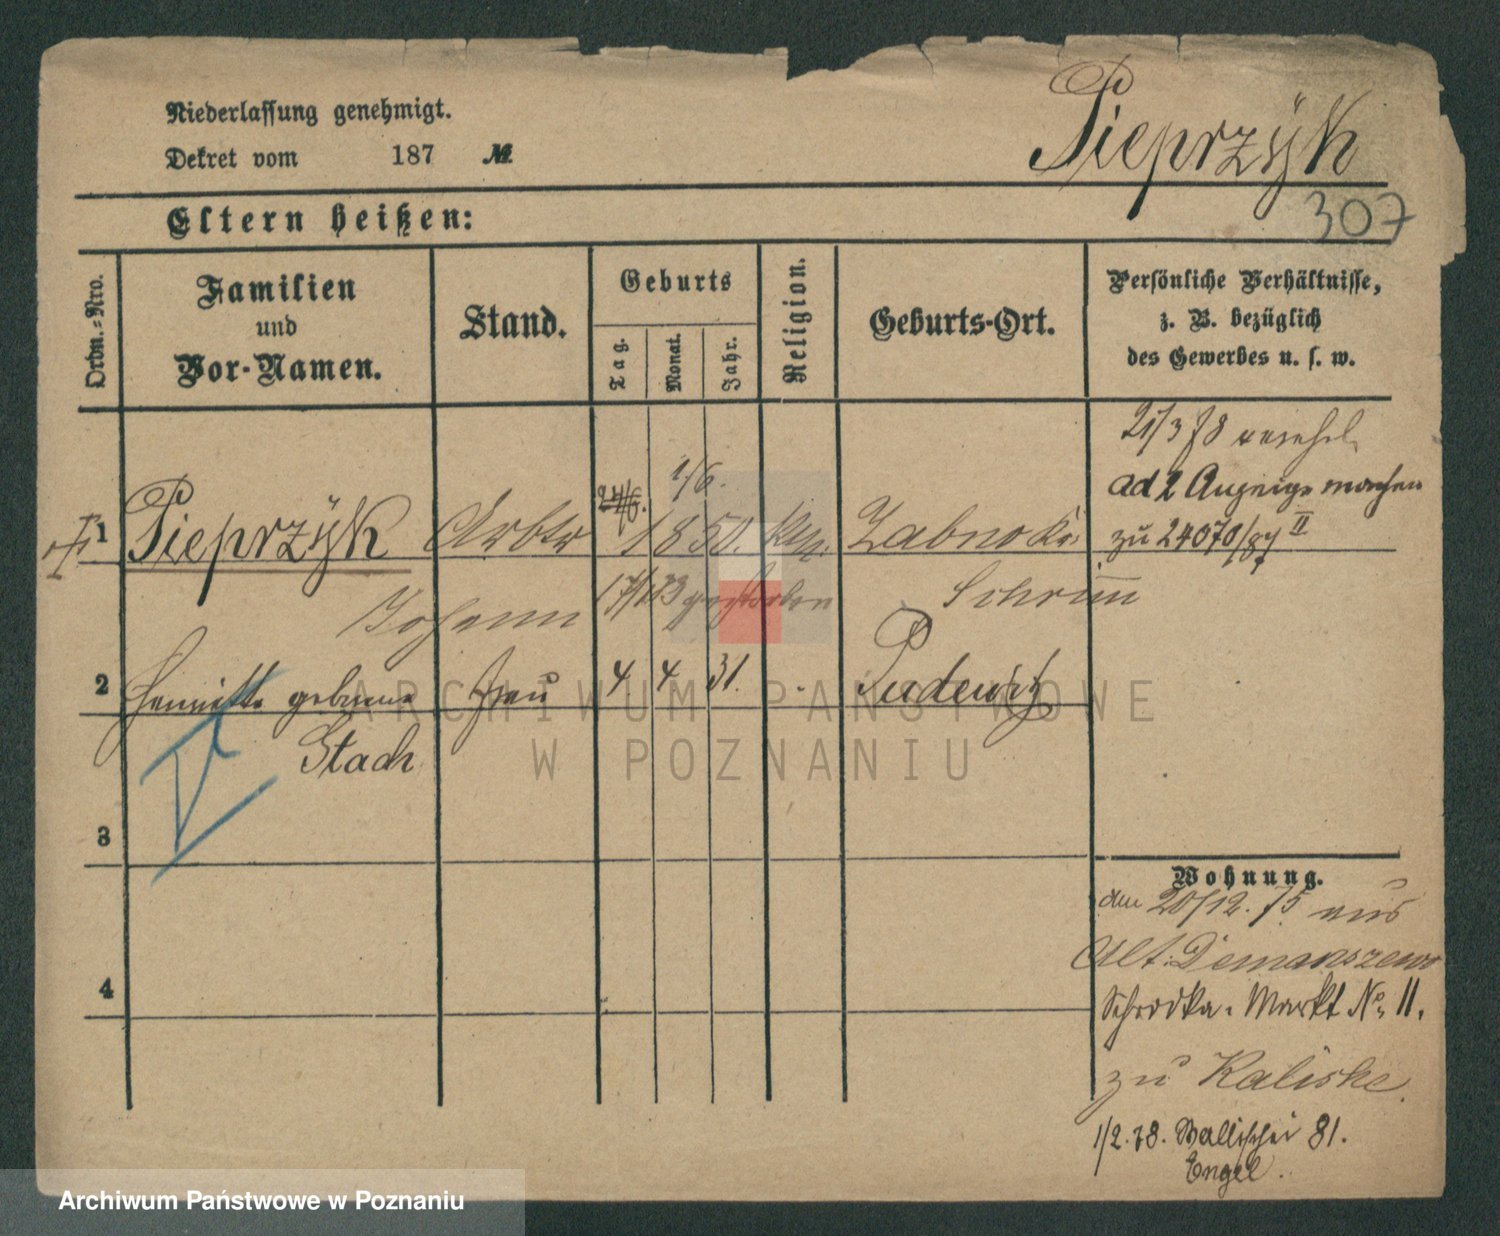 Niederlassung genehmigt.
Dekret vom 187 №
Pieprzÿk
307
Eltern heißen:
Ordn.-Nro.
Familien
und
Vor-Namen.
Stand.
Geburts
Tag.
Monat.
Jahr.
Religion.
Geburts-Ort.
Persönliche Verhältnisse,
z. B. bezüglich
des Gewerbes u. s. w.
21/3 78
ad 2 Anzeige machen
zu 24070/87 II
1/6.
1 Pieprzÿk Arbtr 1850. Kth. Zabno Kr.
Johann gestorben Schrimm
2 Henriette geborene Frau 4 4 31. Pudewitz
Stach
3
Wohnung.
den 20/12. 75 aus
Alt. Demanszewo
4
Schrodka-Markt No 11.
zu Kaliske.
1/2.78. Wallischei 81.
Engel.
ARCHIWUM PAŃSTWOWE
W POZNANIU
Archiwum Państwowe w Poznaniu